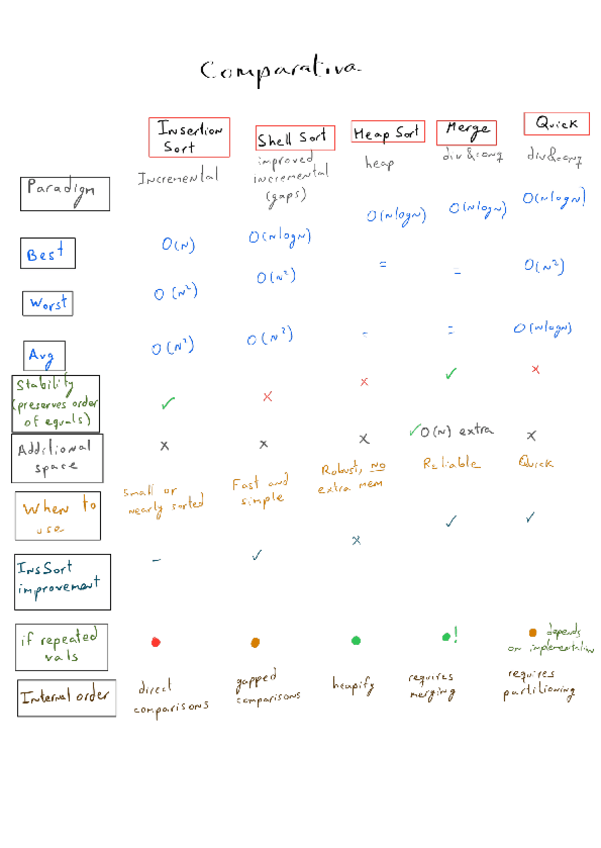 Comparativa
Insertion Sort
Shell Sort
Heap Sort
Merge
Quick
Paradigm
Incremental
improved incremental (gaps)
heap
div&conq
div&conq
Best
O(N)
O(NlogN)
O(NlogN)
O(NlogN)
O(NlogN)
Worst
O(N²)
O(N²)
=
=
O(N²)
Avg
O(N²)
O(N²)
=
=
O(NlogN)
Stability (preserves order of equals)
✓
×
×
✓
×
Additional space
×
×
×
✓O(N) extra
×
When to use
Small or nearly sorted
Fast and simple
Robust, no extra mem
Reliable
Quick
InsSort improvement
–
✓
×
✓
✓
if repeated vals
!
depends on implementation
Internal order
direct comparisons
gapped comparisons
heapify
requires merging
requires partitioning